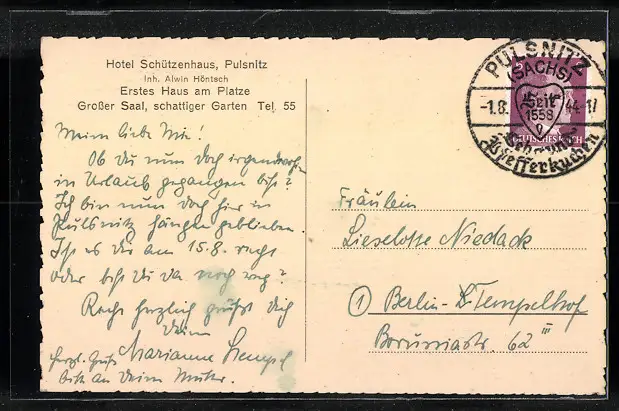 Hotel Schützenhaus, Pulsnitz
Inh. Alwin Höntsch
Erstes Haus am Platze
Großer Saal, schattiger Garten Tel. 55
Meine liebe Mie!
Ob du nun doch irgendwohin
in Urlaub gegangen bist?
Ich bin nun doch hier in
Pulsnitz hängen geblieben.
Ist es dir am 15.8. recht
oder bist du da noch weg?
Recht herzlich grüßt dich
deine
Marianne
herzl. Grüße
an deine Mutter.
PULSNITZ
(SACHS)
-1.8. 44.-17
Seit
1558
DEUTSCHES REICH
Pfefferkuchen
Fräulein
Lieselotte Niedack
1 Berlin-Tempelhof
Borussiastr. 62 III